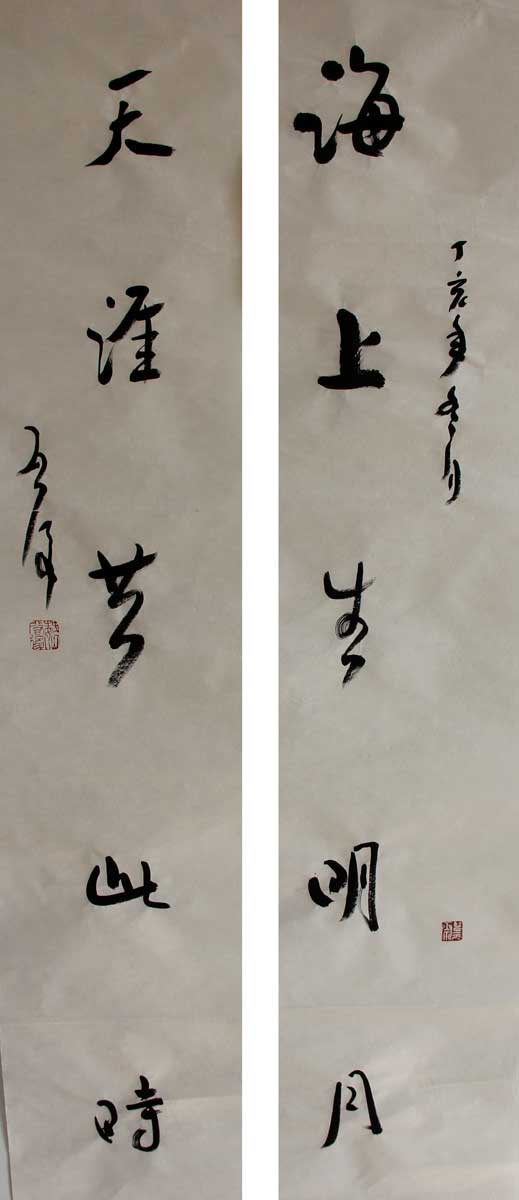 丁亥年冬月
海上生明月
天涯共此時